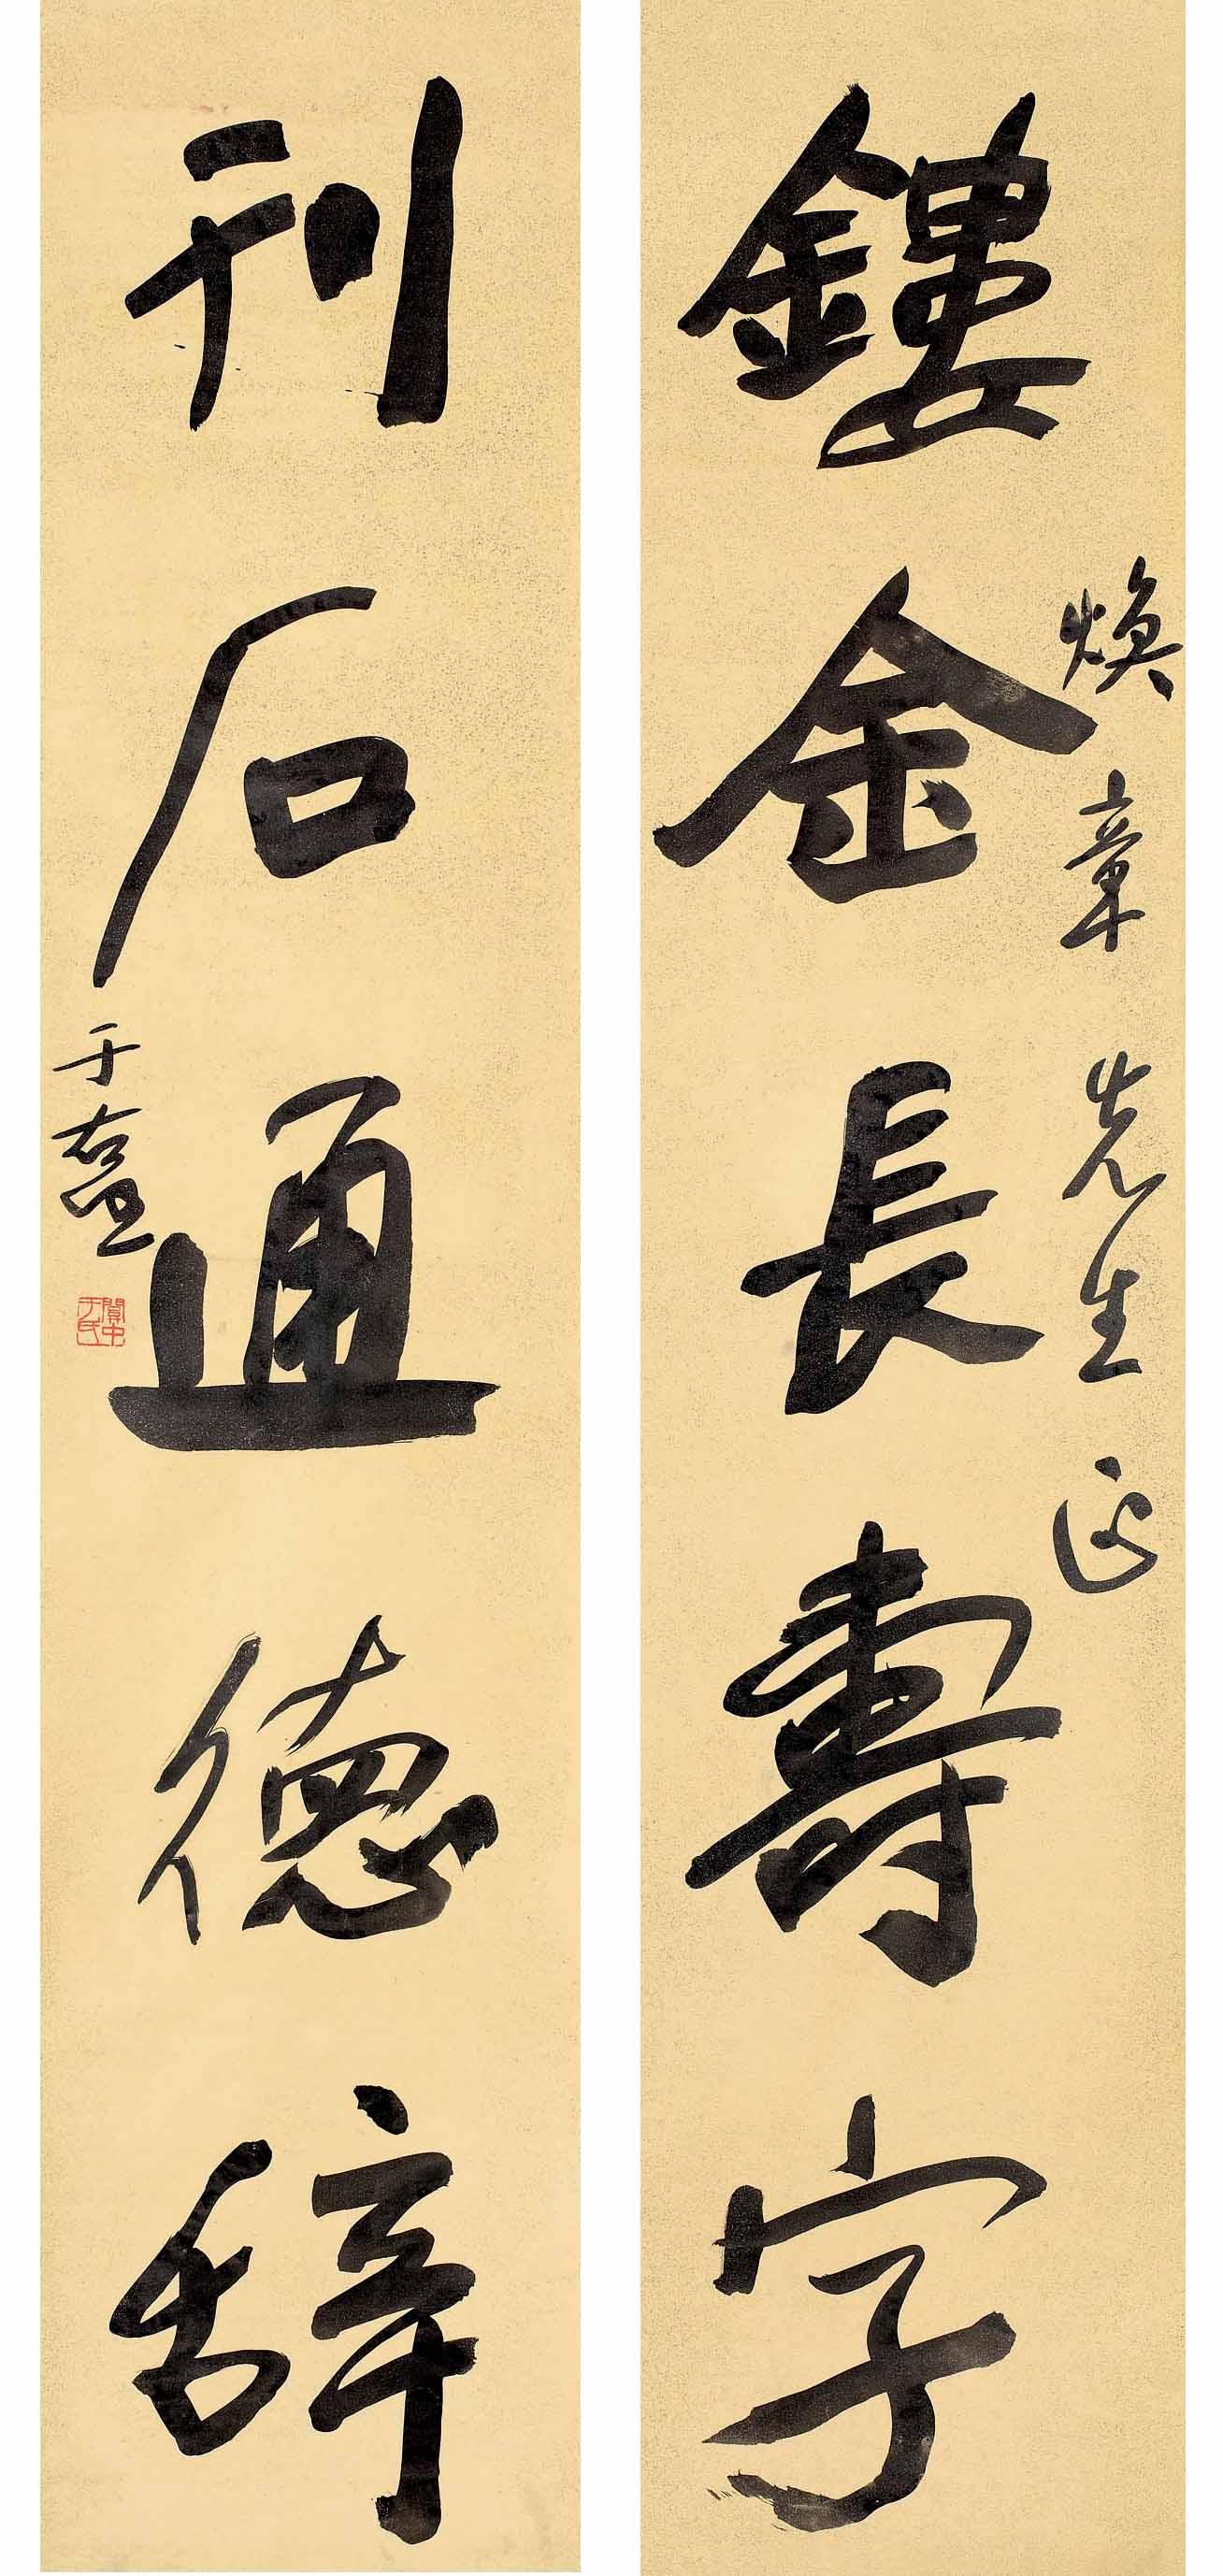 鏤金長壽字
煥章先生正
刊石通德辞
于右任
關中于氏